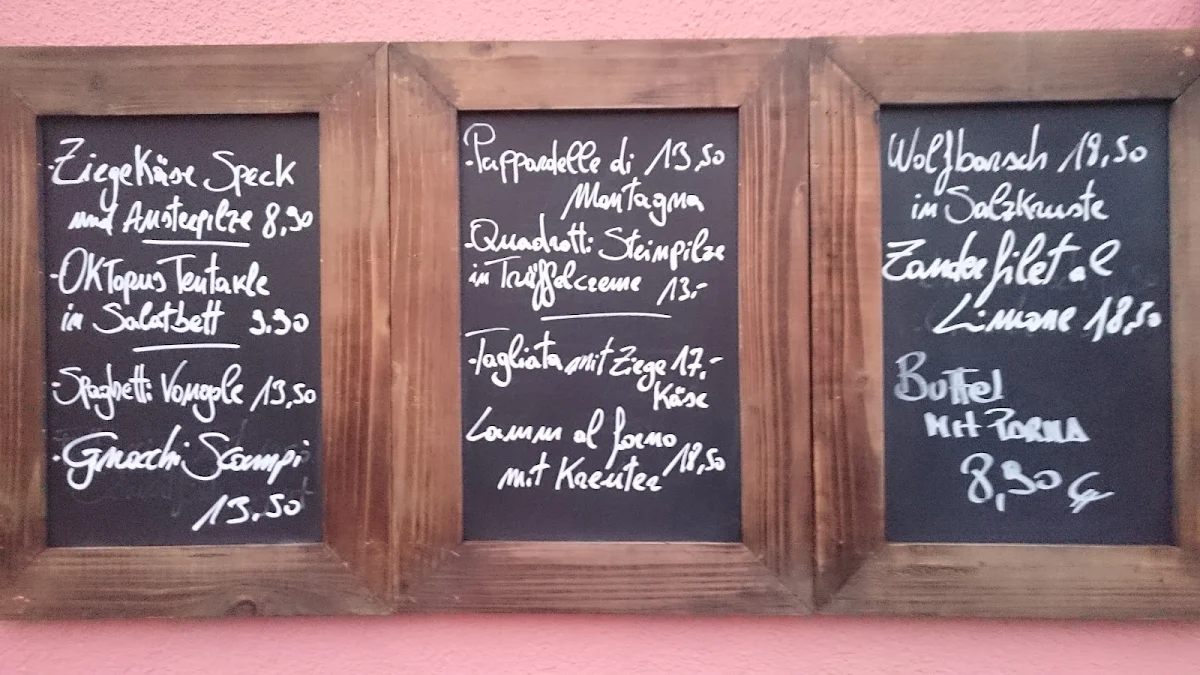 -Ziegekäse Speck
und Austerpilze 8,90
-Oktopus Tentakle
in Salatbett 9.90
-Spaghetti Vongole 13,50
-Gnocchi Scampi
13.50
-Pappardelle di 13,50
Montagna
-Quadrotti Steinpilze
in Trüffelcreme 13.-
-Tagliata mit Ziege 17,-
Käse
Lamm al forno
mit Kreuter 18,50
Wolfbarsch 18,50
in Salzkruste
Zanderfilet al
Limone 18,50
Buffel
Mit PARMA
8,90 €